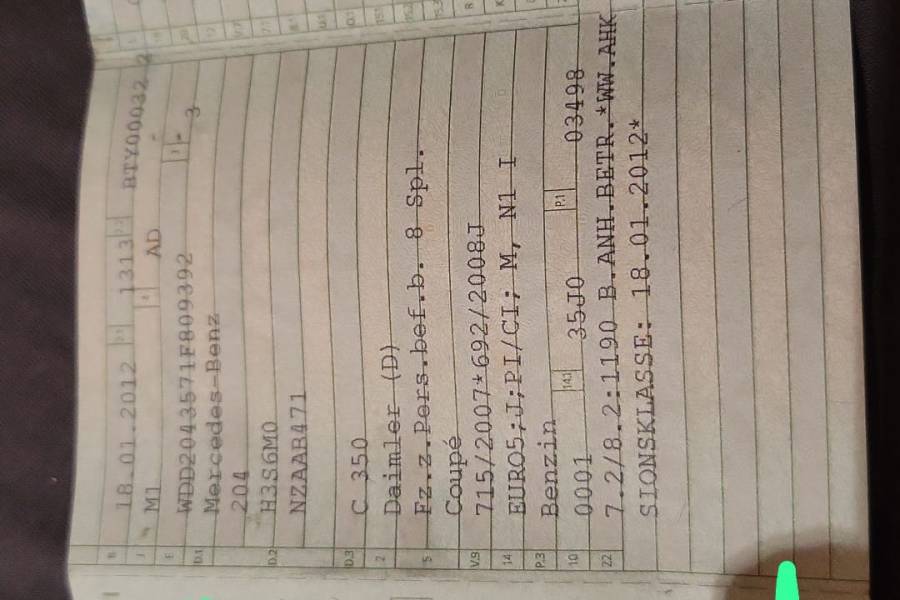 B 18.01.2012 2.1 1313 2.2 BTY00032 2
J M1 4 AD -
E WDD2043571F809392 3 - 3
D.1 Mercedes-Benz
204
D.2 H3S6M0
NZAAB471
D.3 C 350
2 Daimler (D)
5 Fz.z.Pers.bef.b. 8 Spl.
Coupé
V.9 715/2007*692/2008J
14 EURO5;J;PI/CI; M, N1 I
P.3 Benzin
10 0001 14.1 35J0 P.1 03498
22 7.2/8.2:1190 B.ANH.BETR.*WW.AHK
SIONSKLASSE: 18.01.2012*